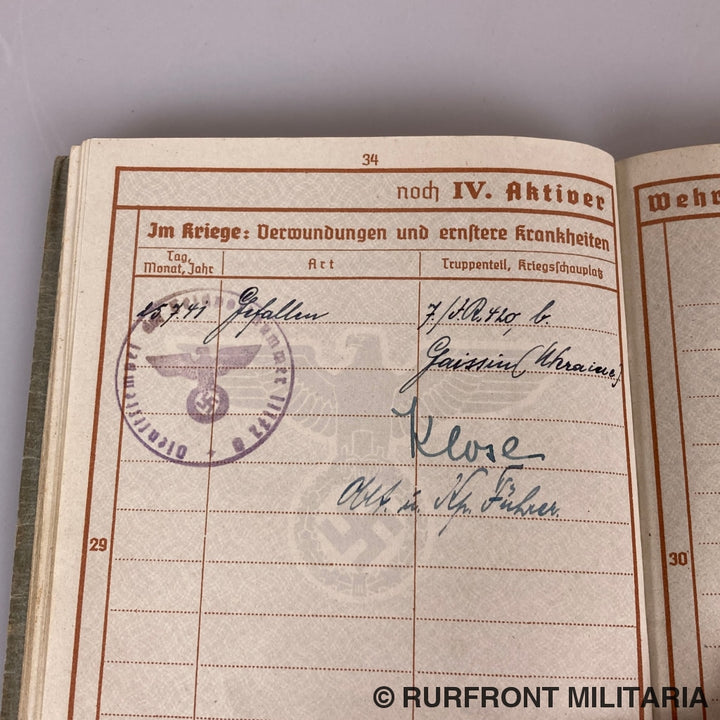 34
noch IV. Aktiver
Wehr
Im Kriege: Verwundungen und ernstere Krankheiten
Tag, Monat, Jahr
Art
Truppenteil, Kriegsschauplatz
25.7.41 Gefallen 7./I.R. 420, b.
Gaissin (Ukraine)
Dienststempel
Klose
Oblt. u. Kp. Führer.
29
30
© RURFRONT MILITARIA